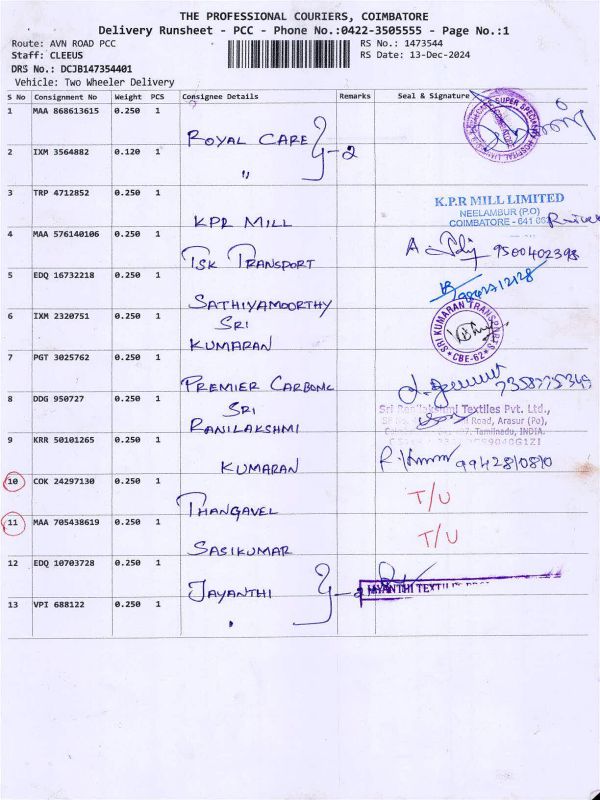 THE PROFESSIONAL COURIERS, COIMBATORE
Delivery Runsheet - PCC - Phone No.:0422-3505555 - Page No.:1
Route: AVN ROAD PCC
RS No.: 1473544
Staff: CLEEUS
RS Date: 13-Dec-2024
DRS No.: DCJB147354401
Vehicle: Two Wheeler Delivery
S No Consignment No Weight PCS Consignee Details Remarks Seal & Signature
1 MAA 868613615 0.250 1
ROYAL CARE
2
2 IXM 3564882 0.120 1
"
3 TRP 4712852 0.250 1
KPR MILL
K.P.R MILL LIMITED
NEELAMBUR (P.O)
COIMBATORE - 641
4 MAA 576140106 0.250 1
TSK TRANSPORT
9500402398
5 EDQ 16732218 0.250 1
SATHIYAMOORTHY
6 IXM 2320751 0.250 1
SRI
KUMARAN
SRI KUMARAN TRANSPORTS
CBE-62
7 PGT 3025762 0.250 1
PREMIER CARBONC
7358775349
8 DDG 950727 0.250 1
SRI
RANILAKSHMI
Sri Ranilakshmi Textiles Pvt. Ltd.,
Road, Arasur (Po),
Tamilnadu, INDIA.
9 KRR 50101265 0.250 1
KUMARAN
9942810810
10 COK 24297130 0.250 1
THANGAVEL
T/U
11 MAA 705438619 0.250 1
SASIKUMAR
T/U
12 EDQ 10703728 0.250 1
JAYANTHI
2
13 VPI 688122 0.250 1